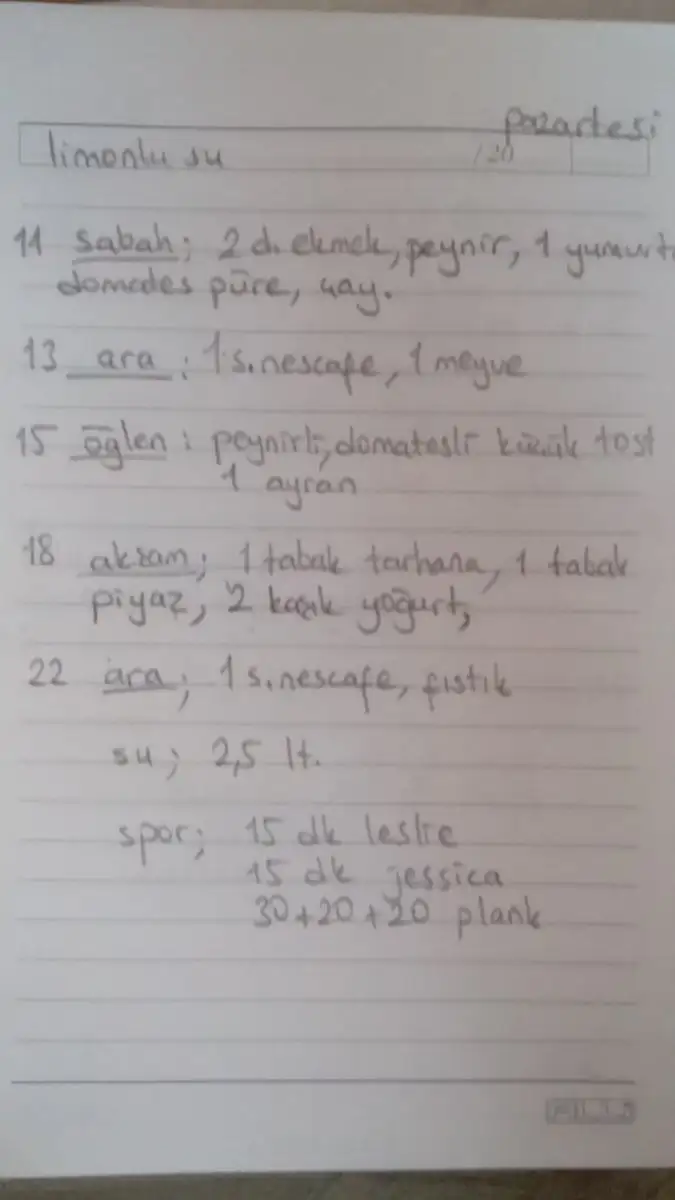 pazartesi
limonlu su /20
11 sabah; 2 d. ekmek, peynir, 1 yumurt
domades püre, çay.
13 ara : 1 s. nescafe, 1 meyve
15 öğlen : peynirli, domatesli küçük tost
1 ayran
18 akşam; 1 tabak tarhana, 1 tabak
piyaz, 2 kaşık yoğurt,
22 ara; 1 s. nescafe, fıstık
su; 2,5 lt.
spor; 15 dk leslie
15 dk jessica
30+20+20 plank